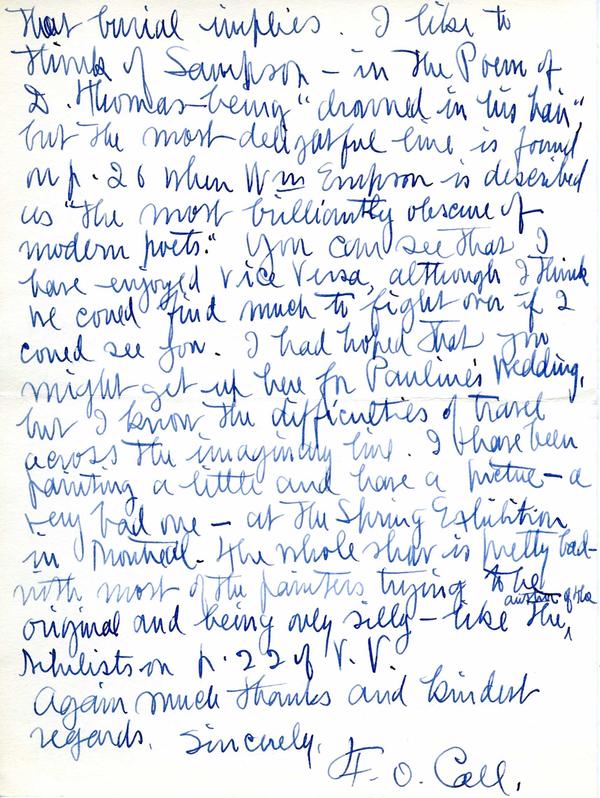 that burial implies. I like to
think of Sampson – in the Poem of
D. Thomas – being "drowned in his hair",
but the most delightful line is found
on p. 26 when Wm Empson is described
as "the most brilliantly obscure of
modern poets." You can see that I
have enjoyed Vice Versa, although I think
we could find much to fight over if I
could see you. I had hoped that you
might get up here for Pauline's Wedding,
but I know the difficulties of travel
across the imaginary line. I have been
painting a little and have a picture – a
very bad one – at the Spring Exhibition
in Montreal. The whole show is pretty bad –
with most of the painters trying to be
original and being only silly – like the
of the
Nihilists on p. 22 of V. V.
Again much thanks and kindest
regards. Sincerely,
F. O. Call.